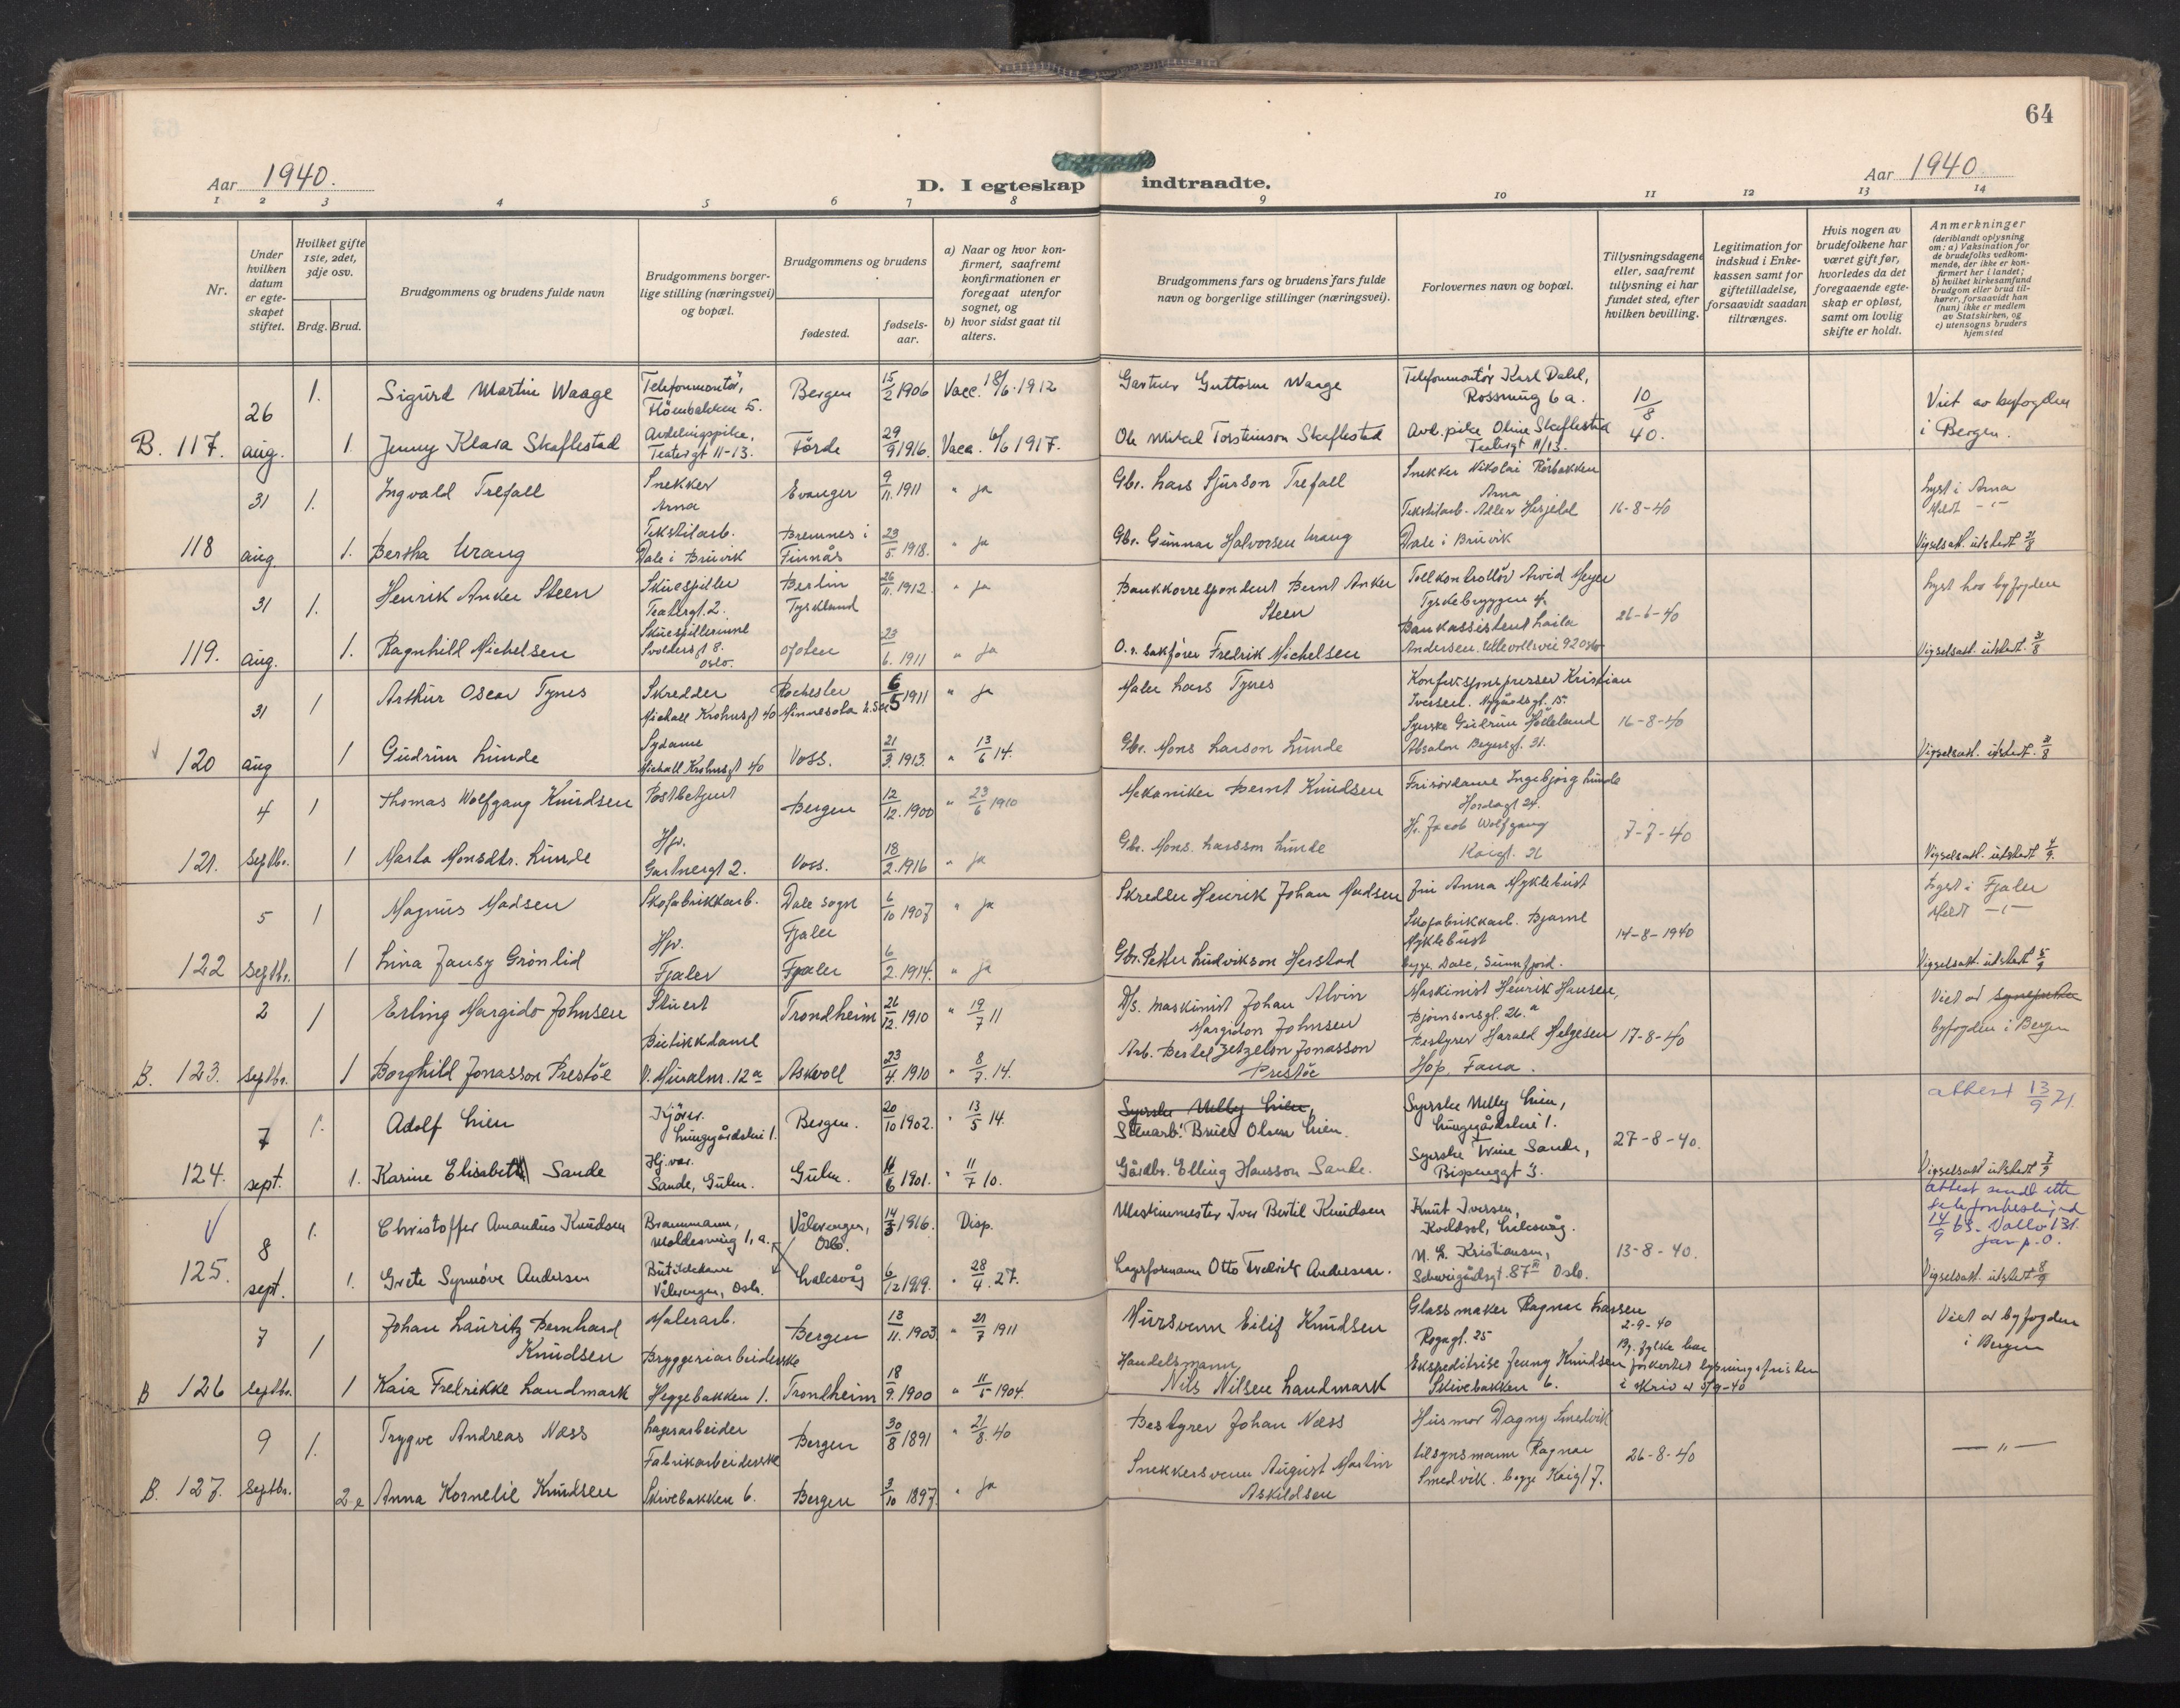 64
Aar 1940.
D. I egteskap indtraadte.
Aar 1940
1 2 3 4 5 6 7 8 9 10 11 12 13 14
Nr.
Under hvilken datum er egteskapet stiftet.
Hvilket gifte 1ste, 2det, 3dje osv.
Brdg. Brud.
Brudgommens og brudens fulde navn
Brudgommens borgerlige stilling (næringsvei) og bopæl.
Brudgommens og brudens
fødested.
fødsels-aar.
a) Naar og hvor konfirmert, saafremt konfirmationen er foregaat utenfor sognet, og
b) hvor sidst gaat til alters.
Brudgommens fars og brudens fars fulde navn og borgerlige stillinger (næringsvei).
Forlovernes navn og bopæl.
Tillysningsdagene eller, saafremt tillysning ei har fundet sted, efter hvilken bevilling.
Legitimation for indskud i Enkekassen samt for giftetilladelse, forsaavidt saadan tiltrænges.
Hvis nogen av brudefolkene har været gift før, hvorledes da det foregaaende egteskap er opløst, samt om lovlig skifte er holdt.
Anmerkninger
(deriblandt oplysning om: a) Vaksination for de brudefolks vedkommende, der ikke er konfirmert her i landet;
b) hvilket kirkesamfund brudgom eller brud tilhører, forsaavidt han (hun) ikke er medlem av Statskirken, og
c) utensogns bruders hjemsted
B. 117. 26 aug. 1. Sigurd Martin Waage Telefonmontör, Flöenbakken 5. Bergen 15/2 1906 Vacc. 18/6.1912 Gartner Guttorm Waage Telefonmontör Karl Dahl, 6a. 10/8 40. Viet av byfogden i Bergen.
1. Jenny Klara Skaflestad Avdelingspike, Teatergt 11-13. Förde 29/9 1916. Vacc. 6/6 1917. Ole Mikal Torsteinson Skaflestad Avd. pike Oline Skaflestad Teatergt 11/13.
118 31 aug 1. Ingvald Trefall Snekker Arna Evanger 9/11.1911 " ja Gbr. Lars Sjurson Trefall Snekker Nikolai Rörbakken Arna 16-8-40 Lyst i Arna
1. Bertha Urang Tekstilarb. Dale i Bruvik Bremnes i Finnås 23/5.1918. " ja Gbr. Gunnar Halvorsen Urang Tekstilarb. Dale i Bruvik Vigselsatt. utstedt 31/8
119. 31 aug. 1. Henrik Anker Steen Skuespiller Teatergt. 2. Berlin Tyskland 26/11.1912. " ja Bankkorrespondent Bernt Anker Steen Tollkontrollör Arvid Meyer Tyskebryggen 4. 26-6-40 Lyst hos byfogden
1. Ragnhild Michelsen Skuespillerinne Svoldersgt 8. Oslo. Ofoten 23/6.1911 " ja O.r. sakförer Fredrik Michelsen Bankassistent Laila Andersen. Ullevollsvei 92 Oslo Vigselsatt. utstedt. 31/8
120 31 aug 1 Arthur Oscar Tynes Skredder Michael Krohnsgt 40 Rochester Minnesota U.S.A. 6/5 1911 " ja Maler Lars Tynes Konfeksjonspresser Kristian Iversen. Nygårdsgt. 15. 16-8-40
1 Gudrun Lunde Sydame Michall Krohnsgt 40 Voss. 21/3.1913. " 13/6 14. Gbr. Mons Larson Lunde Syerske Gudrun Höileland Absalon Beyersgt. 31. Vigselsatt. utstedt. 31/8
121. 4 septbr. 1 Thomas Wolfgang Knudsen Postbetjent Bergen 12/12.1900 " 23/6 1910 Mekaniker Bernt Knudsen Frisördame Ingebjörg Lunde Hordagt 24. 7-7-40
1 Marta Monsdtr. Lunde Hjv. Gartnergt 2. Voss. 18/2.1916 " ja Gbr. Mons. Larsson Lunde Hr. Jacob Wolfgang Kaigt. 26 Vigselsatt. utstedt 4/9.
122 5 septbr. 1 Magnus Madsen Skofabrikkarb. Dale sogn Fjaler 6/10 1907 " ja Skredder Henrik Johan Madsen Fru Anna Myklebust 14-8-1940 Lyst i Fjaler
1 Lina Jensy Grönlid Hjv. Fjaler Fjaler 6/2.1914. " ja Gbr. Petter Ludvikson Herstad Skofabrikkarb. Bjarne Myklebust begge Dale, Sunnfjord. Vigselsatt. utstedt 5/9
B. 123. 2 septbr. 1 Erling Margido Johnsen Stuert Trondheim 26/12.1910 " 19/7 11 D/s. maskinist Johan Alvin Margidon Johnsen Maskinist Henrik Hansen, Björnsonsgt. 26.a 17-8-40 Viet av byfogden i Bergen
1 Borghild Jonasson Prestöe Butikkdame V. Muralm. 12a Askvoll 23/4.1910 " 8/7.14. Arb. Bertel Zetzelon Jonasson Prestöe Bestyrer Harald Helgesen Hop, Fana.
attest 13/9 71.
124. 7 sept. 1. Adolf Lien Kjörer. Lungegårdslei 1. Bergen. 20/10 1902. " 13/5 14. Syerske Nelly Lien, Stenarb. Olsen Lien. Syerske Nelly Lien, Lungegårdslei 1. 27-8-40.
1. Karine Elisabeth Sande Hj.vær. Sande, Gulen. Gulen. 6 1901. " 11/7 10. Gårdbr. Elling Hansson Sande. Syerske Trine Sande, Bispenggt 3. Vigselsatt utstedt 7/9
125. 8 sept. 1. Christoffer Amandus Knudsen Brannmann, 1,a. Vålerengen, Oslo. 14/3 1916. Disp. Maskinmester Iver Bertil Knudsen Knut Iversen, Laksevåg. 13-8-40. attest sendt etter
1. Grete Synnöve Andersen Butikkdame Vålerengen, Oslo. Laksevåg 6/12 1919. " 28/4.27. Lagerformann Otto Fredrik Andersen. N. E. Kristiansen, Schweigårdsgt. 87 Oslo. Vigselsatt. utstedt 8/9
B 126 7 septbr. 1 Johan Lauritz Bernhard Knudsen Malerarb. Bergen 13/11.1903 " 21/7 1911 Mursvenn Eilif Knudsen Glassmaker Ragnar Larsen 25 2-9-40 Viet av byfogden i Bergen
1 Kaia Fredrikke Landmark Bryggeriarbeiderske Heggebakken 1. Trondheim 18/9.1900 " 11/5 1904. Handelsmann Nils Nilsen Landmark Ekspeditrise Jenny Knudsen Skivebakken 6. forkortet lysningsfristen i skriv av 5/9-40
B. 127. 9 Septbr. 1. Trygve Andreas Næss Lagerarbeider Bergen 30/8 1891 " 21/8.40 Bestyrer Johan Næss Husmor Dagny Smedvik 26-8-40 — " —
2e Anna Kornelie Knudsen Fabrikarbeiderske Skivebakken 6. Bergen 3/10 1897 " ja Snekkersvenn August Martin Askildsen tilsynsmann Ragnar Smedvik. begge Kaigt 7.